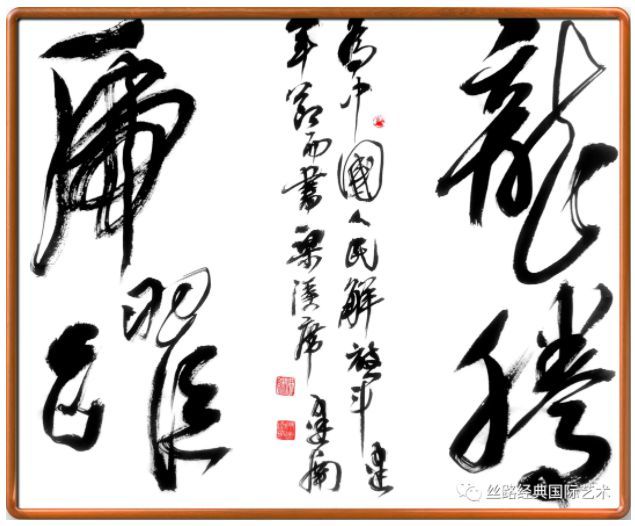 龍騰
為中國人民解放军建
军節而書梁溪席
虎躍
丝路经典国际艺术